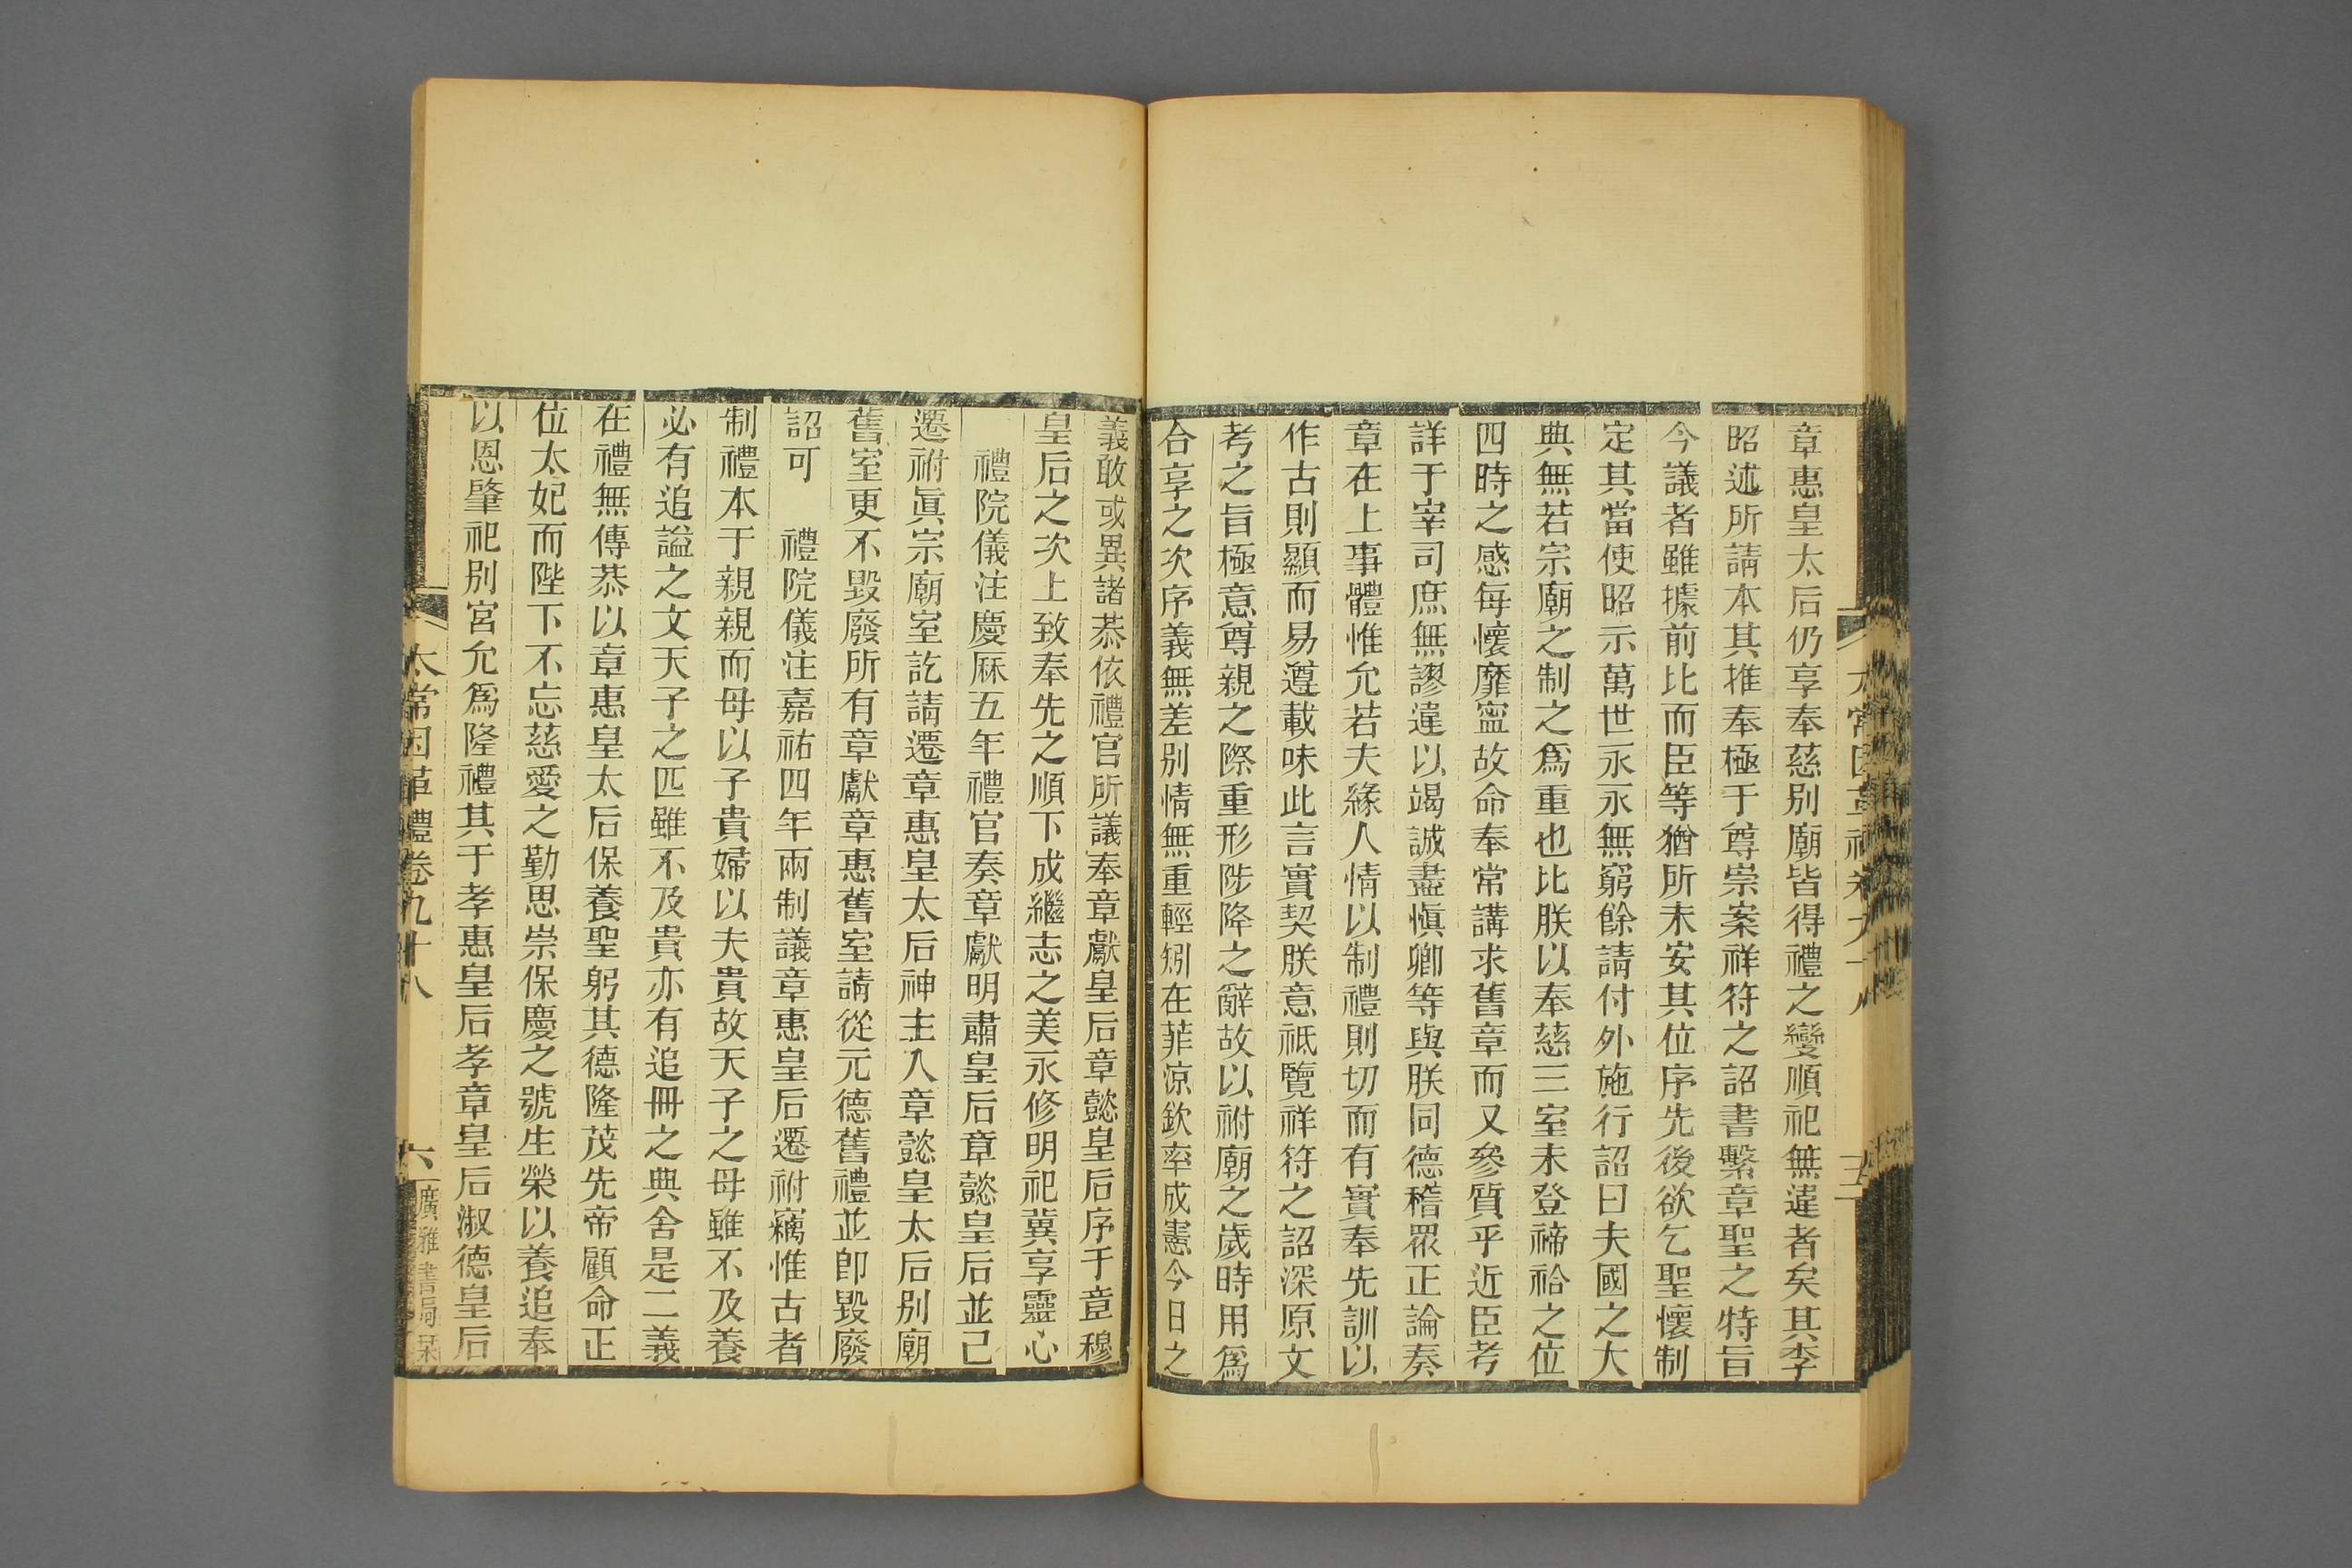 章惠皇太后仍享奉慈別廟皆得禮之變順祀無違者矣其李
昭述所請本其推奉極于尊崇案祥符之詔書繫章聖之特旨
今議者雖據前比而臣等猶所未安其位序先後欲乞聖懷制
定其當使昭示萬世永永無窮餘請付外施行詔曰夫國之大
典無若宗廟之制之爲重也比朕以奉慈三室未登禘祫之位
四時之感每懷靡寍故命奉常講求舊章而又參質乎近臣考
詳于宰司庶無謬違以竭誠盡愼卿等與朕同德稽眾正論奏
章在上事體惟允若夫緣人情以制禮則切而有實奉先訓以
作古則顯而易遵載味此言實契朕意祗覽祥符之詔深原文
考之旨極意尊親之際重形陟降之辭故以祔廟之歲時用爲
合享之次序義無差別情無重輕矧在菲涼欽率成憲今日之
義敢或異諸恭依禮官所議奉章獻皇后章懿皇后序于章穆
皇后之次上致奉先之順下成繼志之美永修明祀冀享靈心
禮院儀注慶厤五年禮官奏章獻明肅皇后章懿皇后並已
遷祔眞宗廟室訖請遷章惠皇太后神主入章懿皇太后別廟
舊室更不毀廢所有章獻章惠舊室請從元德舊禮並卽毀廢
詔可　禮院儀注嘉祐四年兩制議章惠皇后遷祔竊惟古者
制禮本于親親而母以子貴婦以夫貴故天子之母雖不及養
必有追謚之文天子之匹雖不及貴亦有追冊之典舍是二義
在禮無傳恭以章惠皇太后保養聖躬其德隆茂先帝顧命正
位太妃而陛下不忘慈愛之勤思崇保慶之號生榮以養追奉
以恩肇祀別宮允爲隆禮其于孝惠皇后孝章皇后淑德皇后
太常因革禮卷九十八
六
廣雅書局栞